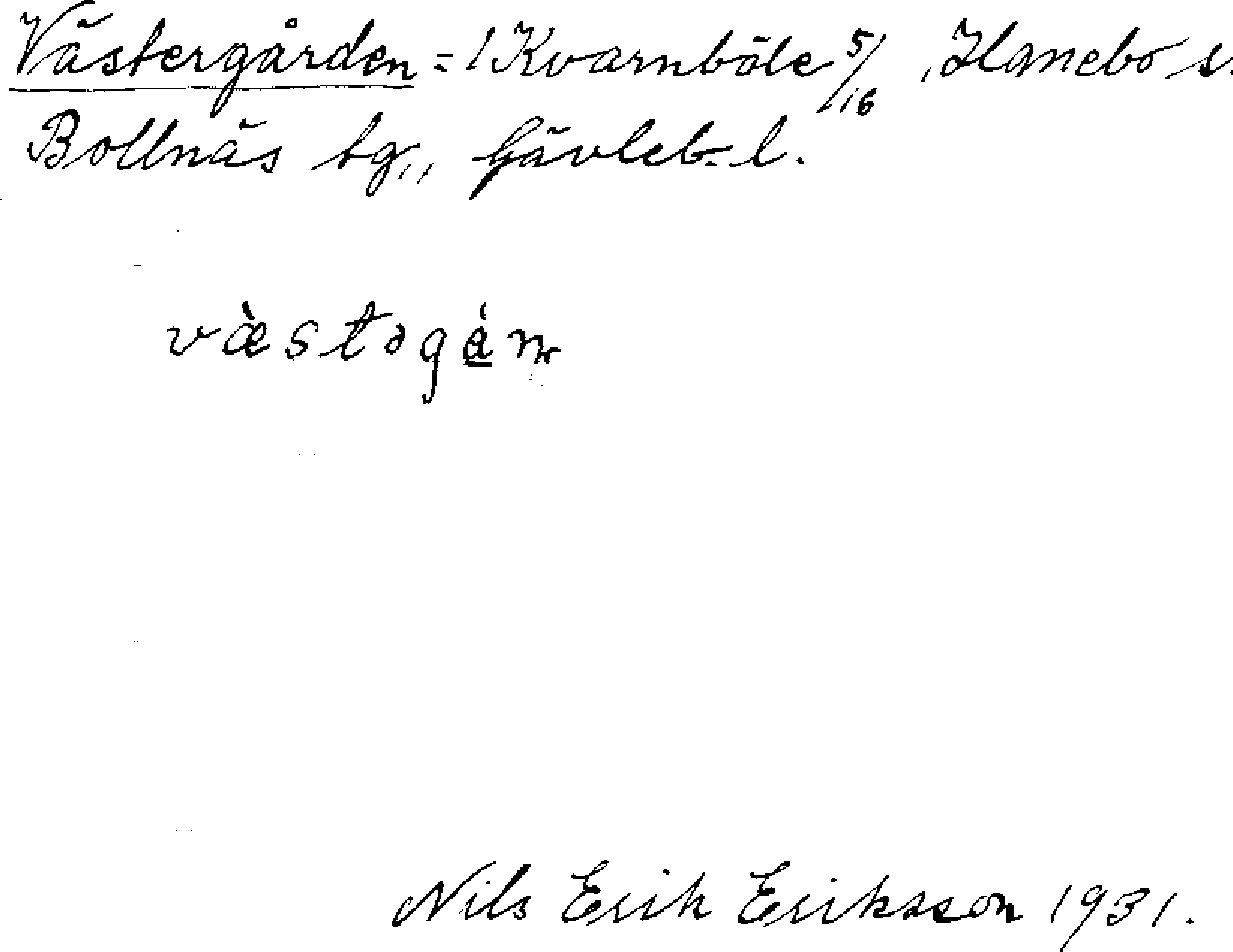 Västergården = 1 Kvarnböle 5/16, Hanebo s.
Bollnäs tg,, Gävleb. l.
væ̀stəgá̱n
Nils Erik Eriksson 1931.